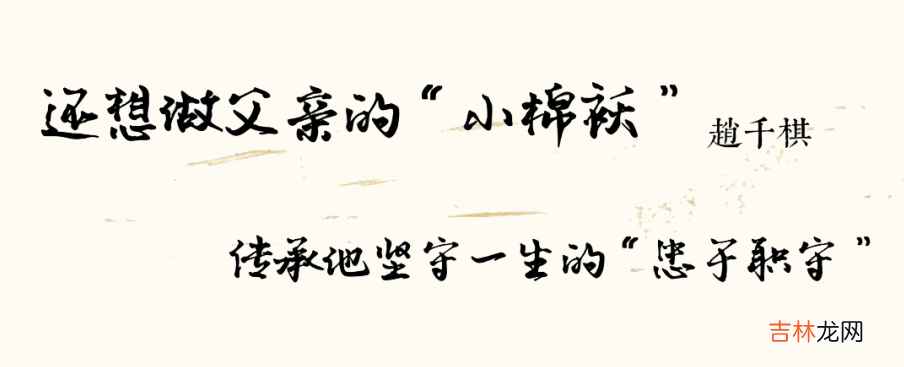 还想做父亲的“小棉袄” 趙千棋
传承他坚守一生的“忠于职守”
吉林龙网